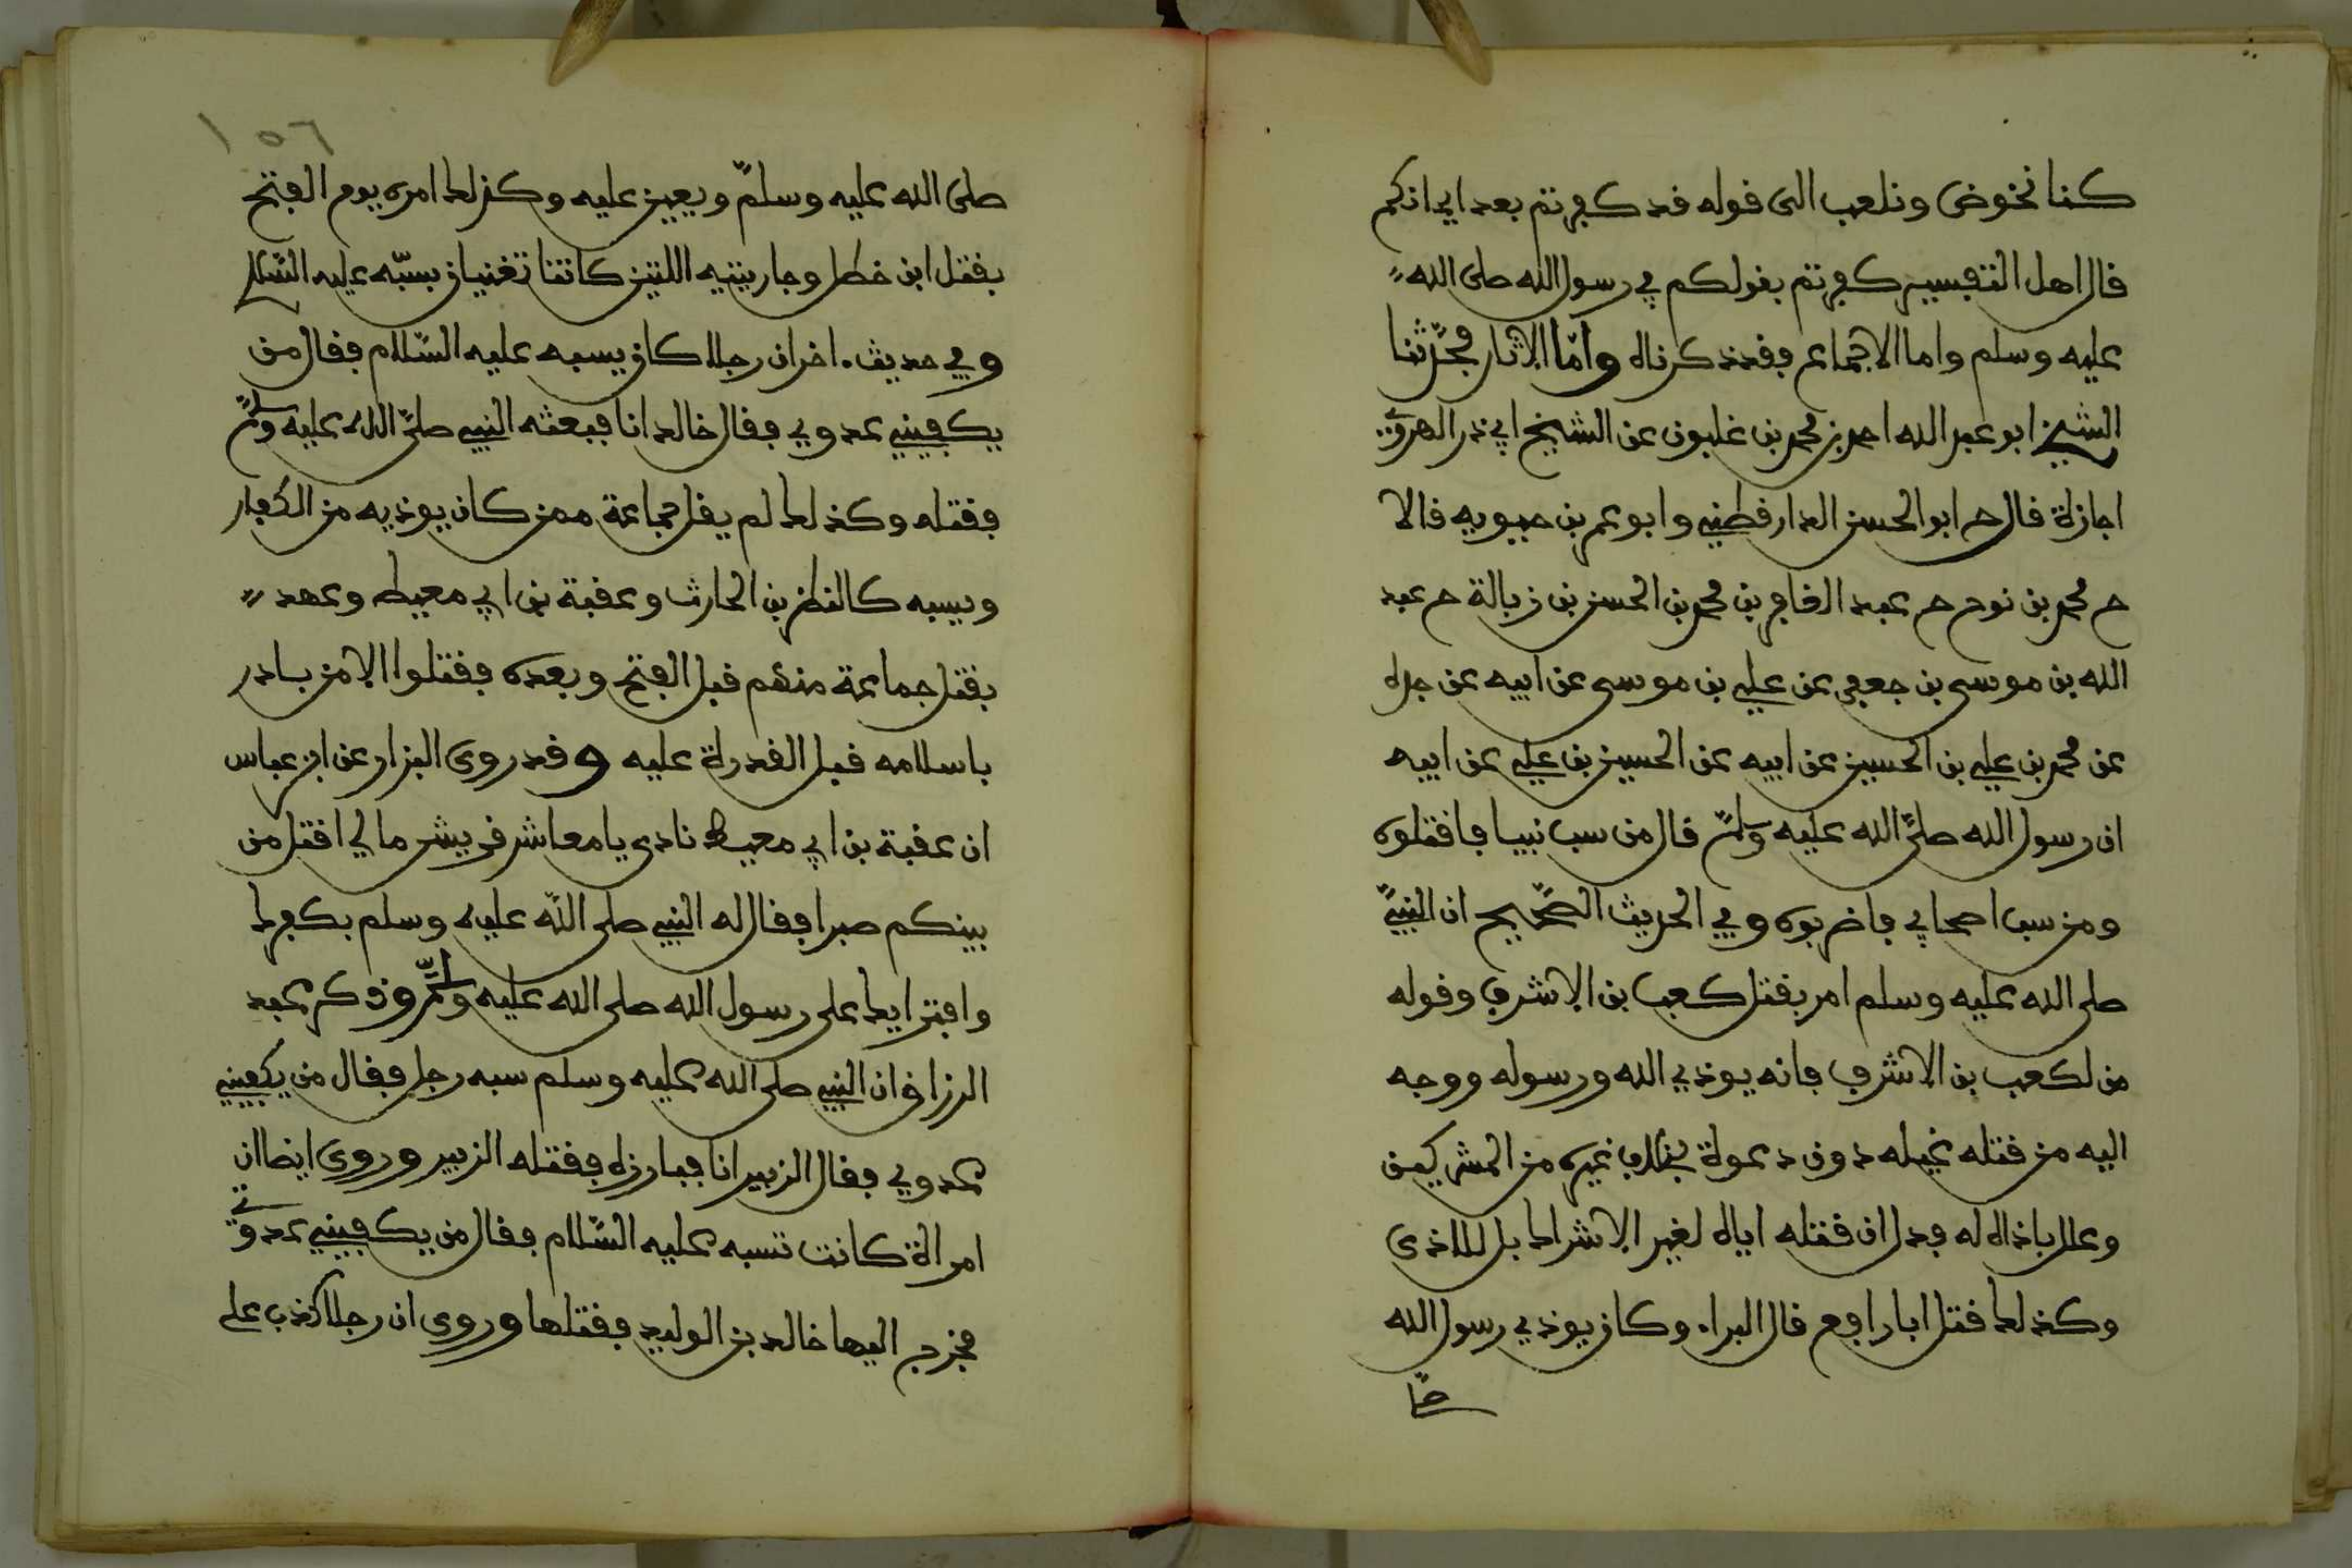 كنا نخوض ونلعب الى قوله قد كفرتم بعد ايمانكم
قال اهل التفسير كفرتم بقولكم في رسول الله صلى الله
عليه وسلم واما الاجماع فقد ذكرناه واما الاثار فحدثنا
الشيخ ابو عبد الله احمد بن محمد بن غلبون عن الشيخ ابي ذر الهروي
اجازة قال ح ابو الحسن الدارقطني وابو عمر بن حيويه قالا
ح محمد بن نوح ح عبد العزيز بن محمد بن الحسن بن زبالة ح عبد
الله بن موسى بن جعفر عن علي بن موسى عن ابيه عن جده
عن محمد بن علي بن الحسين عن ابيه عن الحسين بن علي عن ابيه
ان رسول الله صلى الله عليه وسلم قال من سب نبيا فاقتلوه
ومن سب اصحابي فاضربوه وفي الحديث الصحيح ان النبي
صلى الله عليه وسلم امر بقتل كعب بن الاشرف وقوله
من لكعب بن الاشرف فانه يوذي الله ورسوله ووجه
اليه من قتله غيله دون دعوة بخلاف غيره من المشركين
وعلل باذاه له فدل ان قتله اياه لغير الاشراك بل للاذى
وكذلك قتل ابا رافع قال البراء وكان يوذي رسول الله
صلى
١٥٦
صلى الله عليه وسلم ويعين عليه وكذلك امره يوم الفتح
بقتل ابن خطل وجاريتيه اللتين كانتا تغنيان بسبه عليه السلام
وفي حديث اخر ان رجلا كان يسبه عليه السلام فقال من
يكفيني عدوي فقال خالد انا فبعثه النبي صلى الله عليه وسلم
فقتله وكذلك لم يقل جماعة ممن كان يوذيه من الكفار
ويسبه كالنضر بن الحارث وعقبة بن ابي معيط وعهد
بقتل جماعة منهم قبل الفتح وبعده فقتلوا الا من بادر
باسلامه قبل القدرة عليه وقد روى البزار عن ابن عباس
ان عقبة بن ابي معيط نادى يا معاشر قريش ما لي اقتل من
بينكم صبرا فقال له النبي صلى الله عليه وسلم بكفرك
وافترايك على رسول الله صلى الله عليه وسلم وذكر عبد
الرزاق ان النبي صلى الله عليه وسلم سبه رجل فقال من يكفيني
عدوي فقال الزبير انا فبارزه فقتله الزبير وروى ايضا ان
امراة كانت تسبه عليه السلام فقال من يكفيني عدوتي
فخرج اليها خالد بن الوليد فقتلها وروى ان رجلا كذب على